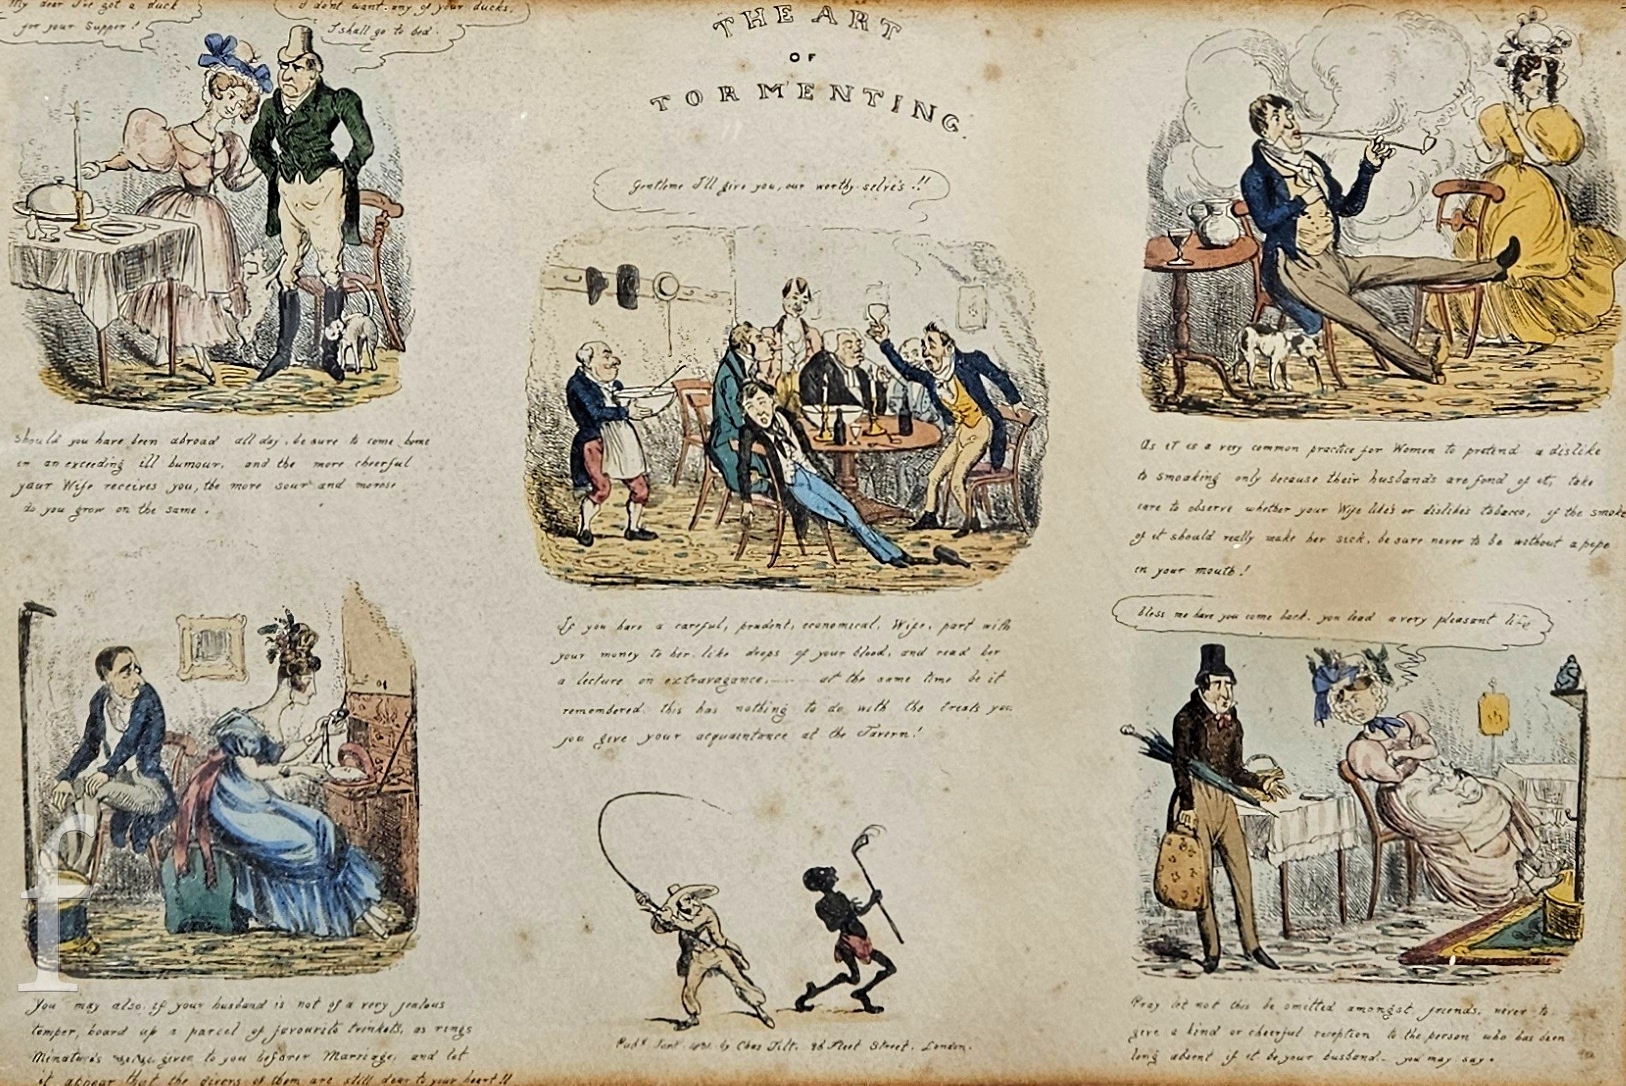 My dear I've got a duck
for your Supper!
I dont want any of your ducks,
I shall go to bed.
THE ART
OF
TORMENTING.
Gentlemen I'll give you, our worthy selve's!!
Should you have been abroad all day, be sure to come home
in an exceeding ill humour, and the more cheerful
your Wife receives you, the more sour and morose
do you grow on the same.
If you have a careful, prudent, economical, Wife, part with
your money to her like drops of your blood, and read her
a lecture on extravagance, at the same time be it
remembered this has nothing to do with the treats you
give your acquaintance at the Tavern!
As it is a very common practice for Women to pretend a dislike
to smoaking only because their husbands are fond of it, take
care to observe whether your Wife like's or dislikes tobacco, if the smoke
of it should really make her sick, be sure never to be without a pipe
in your mouth!
bless me have you come back, you lead a very pleasant life
You may also if your husband is not of a very jealous
temper, hoard up a parcel of favourite trinkets, as rings
Minature's given to you before Marriage, and let
it appear that the givers of them are still dear to your heart!!
Pub.d by Chas Tilt, Fleet Street, London.
Pray let not this be omitted amongst friends, never to
give a kind or cheerful reception to the person who has been
long absent if it be your husband - you may say.
f